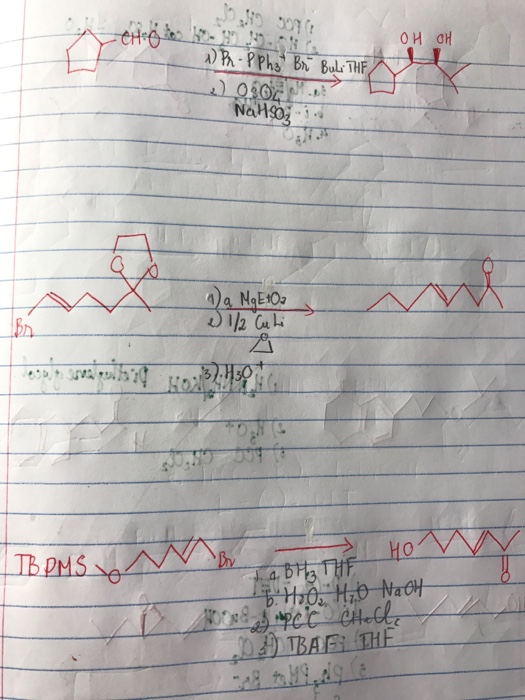 CH=O
1) Pr-PPh3+ Br- BuLi THF
2) OsO4
NaHSO3
OH OH
O O
Br
1) a. MgEtO2
2) 1/2 CuLi
3) H3O+
O
TBDMS O Br
1. a. BH3 THF
b. H2O2 H2O NaOH
2) PCC CH2Cl2
3) TBAF THF
HO O